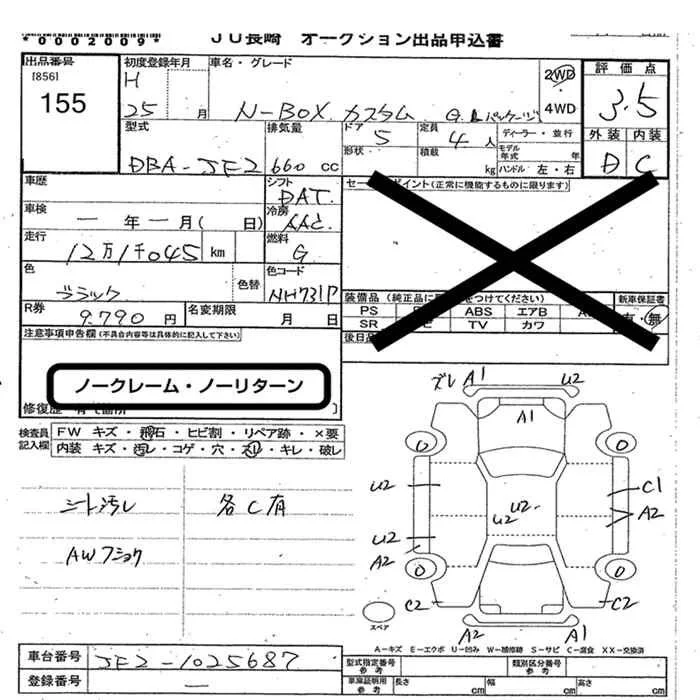 *0002009* JU長崎 オークション出品申込書
出品番号 初度登録年月 車名・グレード 評価点
[856] H 2WD
155 25 月 N-BOX カスタム G Lパッケージ 4WD 3.5
型式 排気量 ドア 5 定員 4人 ディーラー・並行 外装 内装
DBA-JF2 660 cc 形状 積載 kg モデル年式 年 ハンドル 左・右 D C
車歴 シフト DAT セールスポイント(正常に機能するものに限ります)
車検 ー年ー月( 日) 冷房 AAC
走行 12万1千045 km 燃料 G
色 ブラック 色替 色コード NH731P
装備品(純正品に せつけてください) 新車保証書
R券 9,790円 名変期限 月 日 PS ABS エアB 有・無
SR TV カワ
注意事項申告欄(不具合内容等は具体的に記入して下さい) 後日品
ノークレーム・ノーリターン
修復歴
検査員記入欄 FW キズ・飛石・ヒビ割・リペア跡・×要
内装 キズ・汚レ・コゲ・穴・スレ・キレ・破レ
ズレ A1 U2
A1
U2 C1
U2 U2 A2
シート汚レ 各C有
U2
AWフショク A2
C2 C2
スペア
A2 A1
A-キズ E-エクボ U-凹み W-補修跡 S-サビ C-腐食 XX-交換済
車台番号 JF2-1025687 型式指定番号 参考 類別区分番号 参考
登録番号 ー 車庫証明用 参考 長さ cm 幅 cm 高さ cm